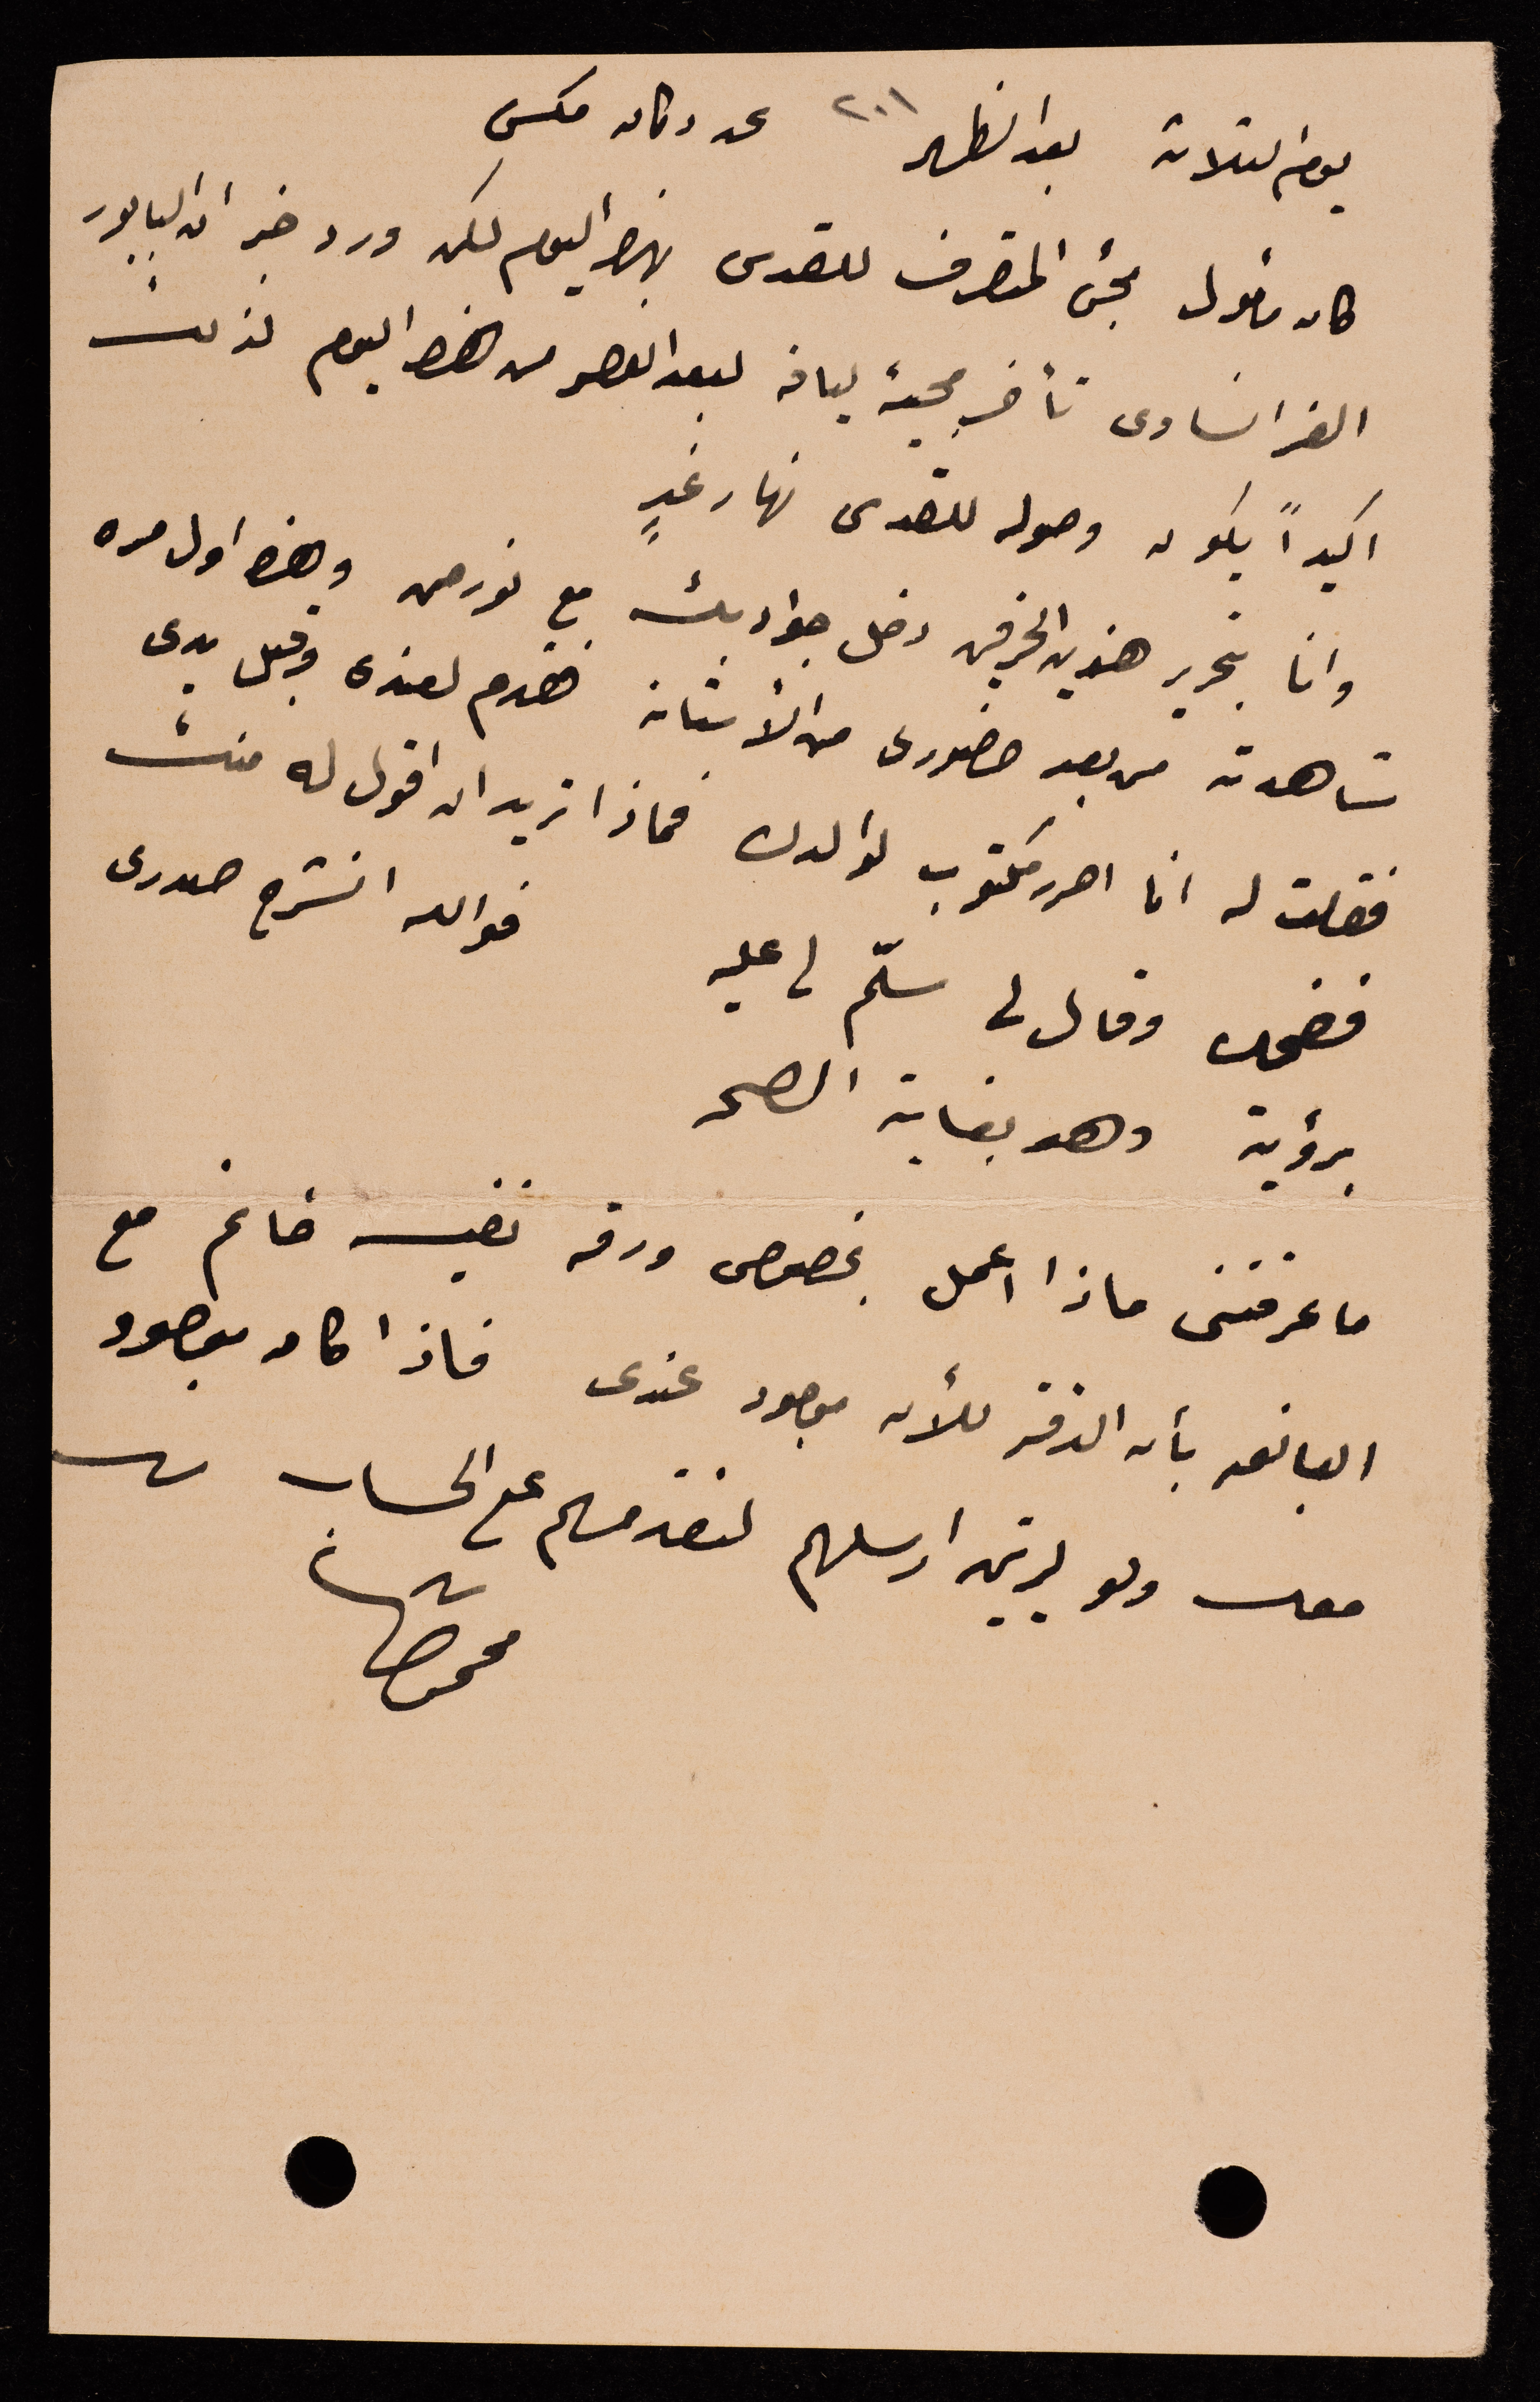 يوم الثلاثة بعد الظهر ٢٠١ عن دكان مكسي
كان مأمول مجئ المتصرف للقدس بهذا اليوم لكن ورد خبر ان البابور
الفرانساوي تأخر مجيئه ليافه لبعد العصر من هذا اليوم لذلك
اكيداً يكون وصوله للقدس نهار غدٍ
وانا بتحرير هذين الحرفين دخل جواد بك مع نورمن وهذا اول مره
شاهدته من بعد حضوري من الأستانة فقدم لعندي وقبل يدي
فقلت له انا احرر مكتوب لوالدك فماذا تريد ان اقول له منك
فضحك وقال لي سلّم لي عليه فوالله انشرح صدري
برؤيته وهو بغاية الصحه
ما عرفتني ماذا اعمل بخصوص ورقة نفيسه خانم مع
العلم بأن الدفتر للأن موجود عندي فاذا كان موجود
معك ولو ليرتين ارسلهم لنقدمهم على الحساب